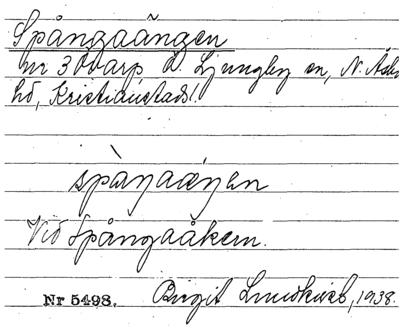 Spångaängen
nr 3 Ovarp Ö. Ljungby sn, N. Åsbo
hd, Kristianstads l.
spàŋaäŋen
Vid Spångaåkern.
Nr 5498. Birgit Lundkvist, 1938.